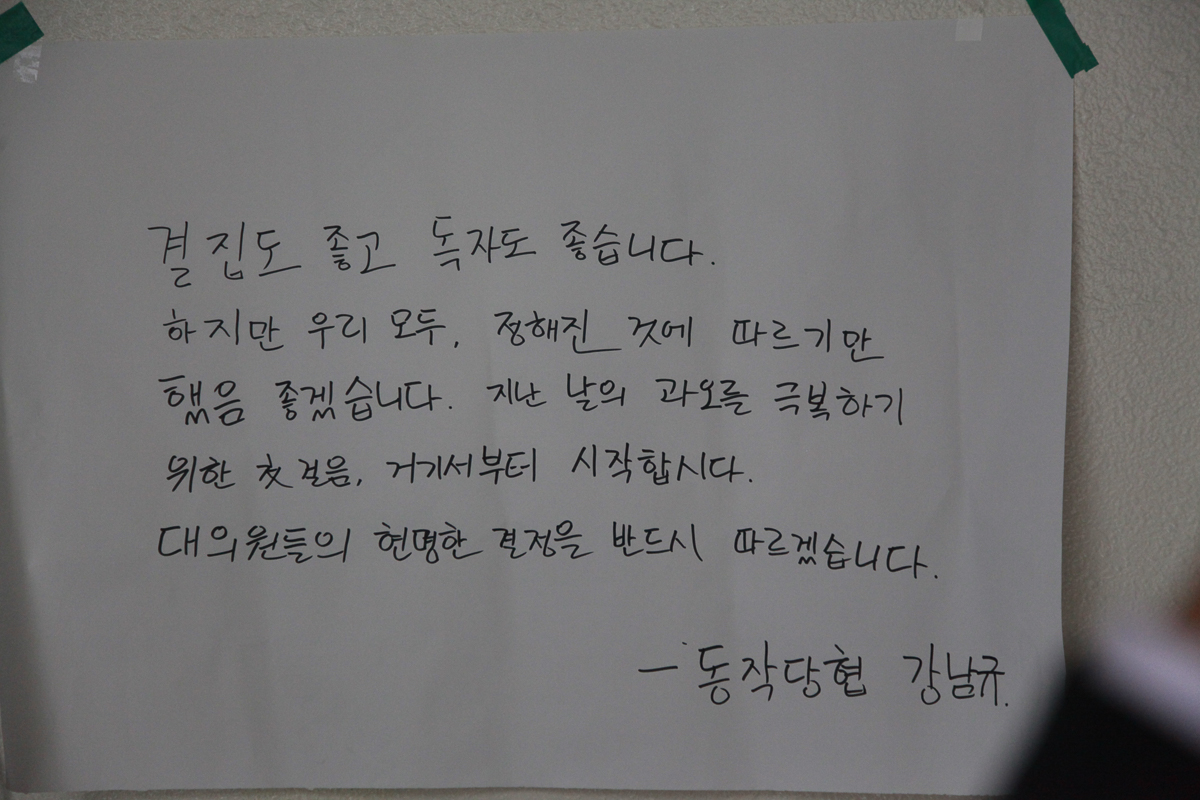 결집도 좋고 독자도 좋습니다.
하지만 우리 모두, 정해진 것에 따르기만
했음 좋겠습니다. 지난 날의 과오를 극복하기
위한 첫걸음, 거기서부터 시작합시다.
대의원들의 현명한 결정을 반드시 따르겠습니다.
- 동작당협 강남규.